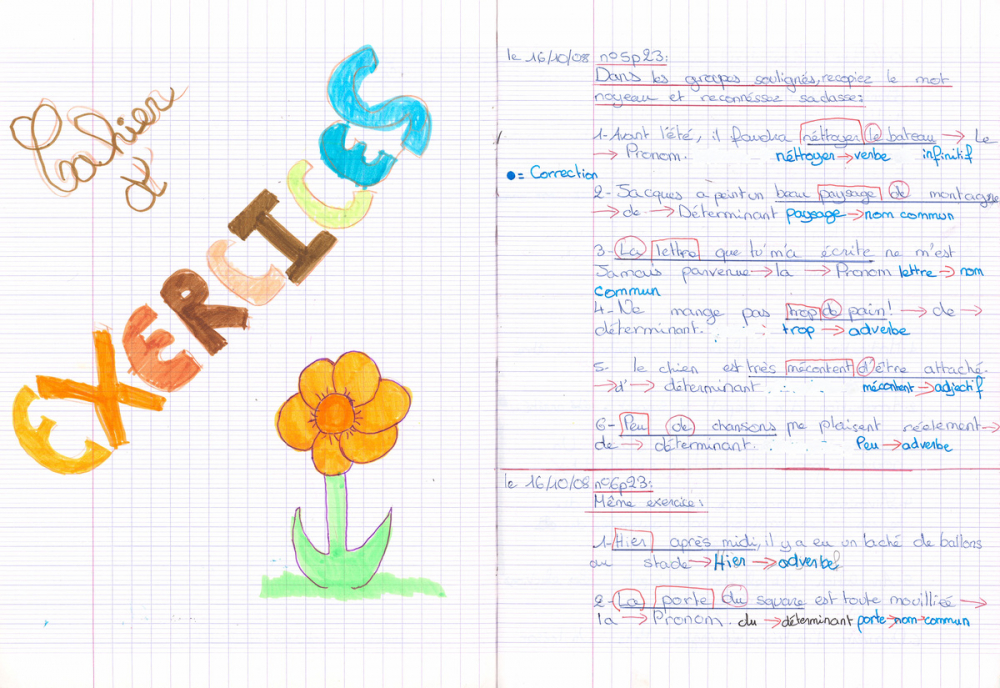 Cahier
d'
EXERCICES
le 16/10/08 n°5p23:
Dans les groupes soulignés, recopiez le mot
noyeau et reconnéssez sa classe:
1-Avant l'été, il faudra néttoyer le bateau → Le
→ Pronom. néttoyer→verbe infinitif
●= Correction
2-Jacques a peint un beau paysage de montagne
→ de → Déterminant paysage→nom commun
3-La lettre que tu m'a écrite ne m'est
Jamais parvenue→la → Pronom lettre→nom
commun
4-Ne mange pas trop de pain! → de →
déterminant. : trop → adverbe
5- le chien est très mécontent d'être attaché.
→d'→ déterminant. mécontent→adjectif
6- Peu de chansons me plaisent réelement→
de → déterminant. Peu→adverbe
le 16/10/08 n°6p23:
Même exercice:
1-Hier après midi, il y a eu un laché de ballons
au stade→Hier →adverbe
2-La porte du square est toute mouillée →
la → Pronom. du →déterminant porte→nom→commun